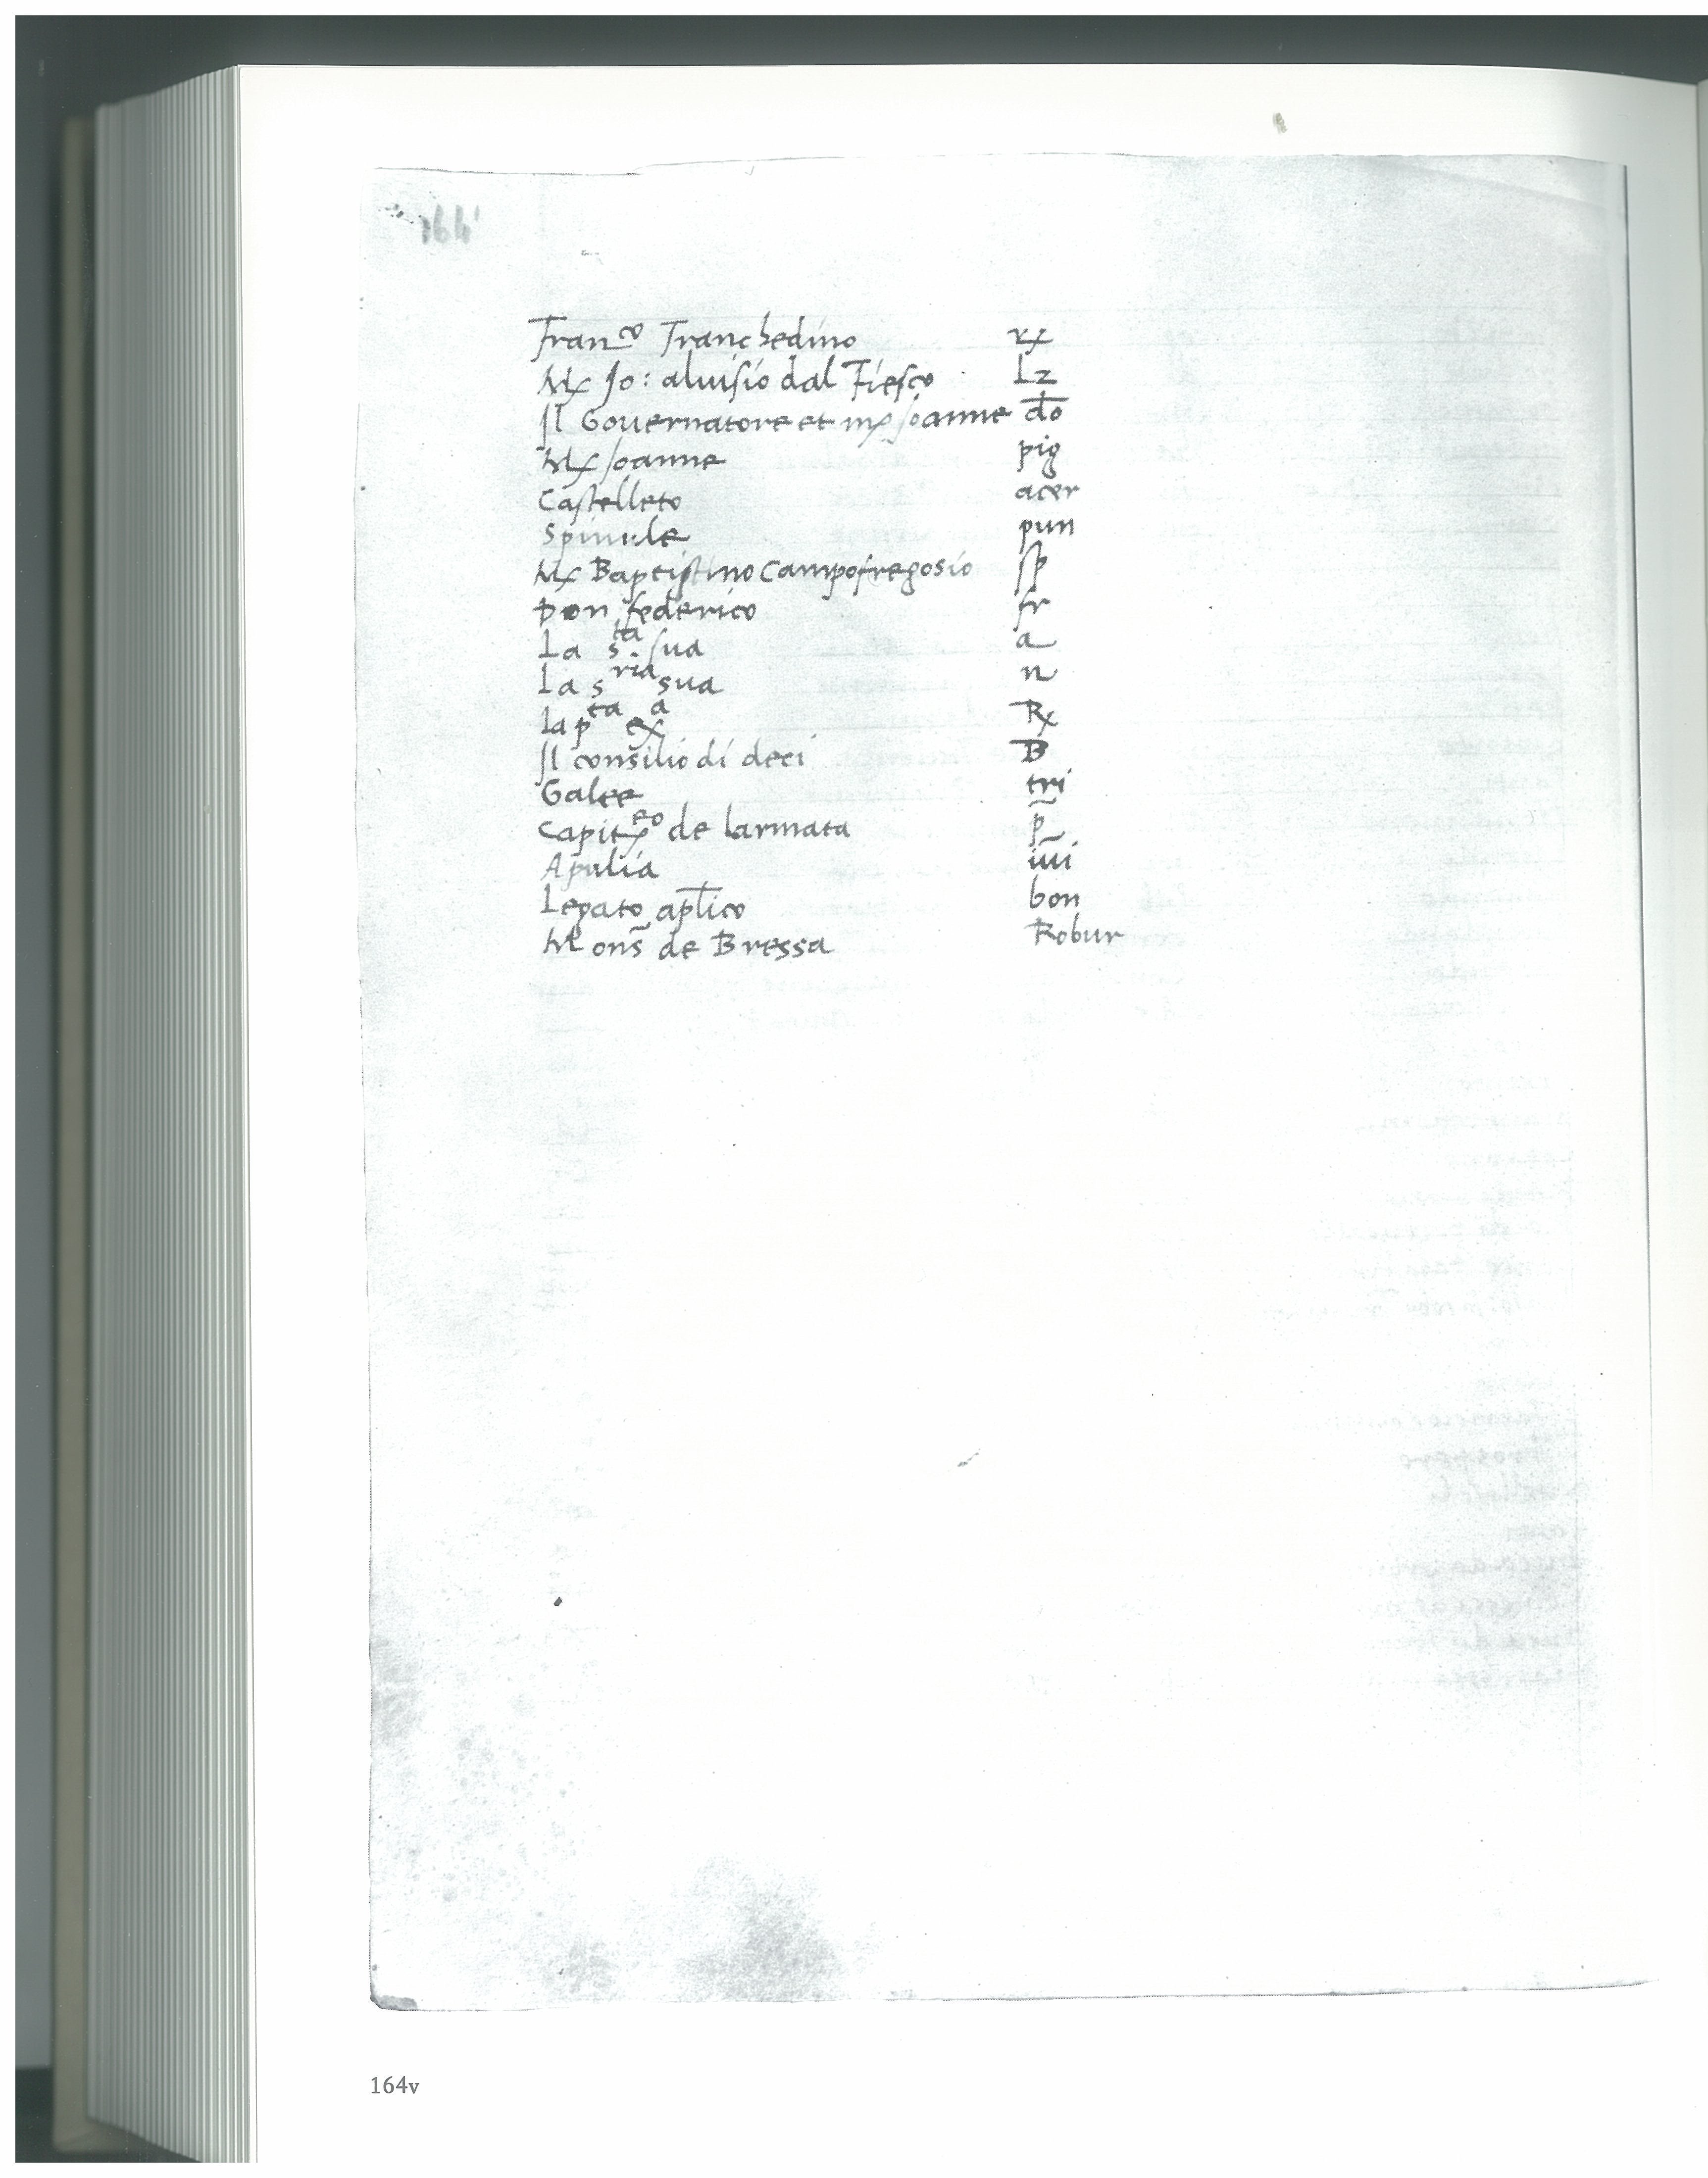 Fran^co Tranchedino rx
Mx Jo: aluisio dal Fiesco Lz
Il Gouernatore et mx Joanne d̄o
Mx Joanne pig
Castelleto acer
Spinule pun
Mx Baptistino Campofregosio sp
Don federico fr
La s^ta sua a
La s^ria sua n
la p^ta ex^a Rx
Il consilio di deci B
Galee tri
Capit^eo de larmata p̃
Apulia iui
Legato ap̄lico bon
Mons̃ de Bressa Robur
164v